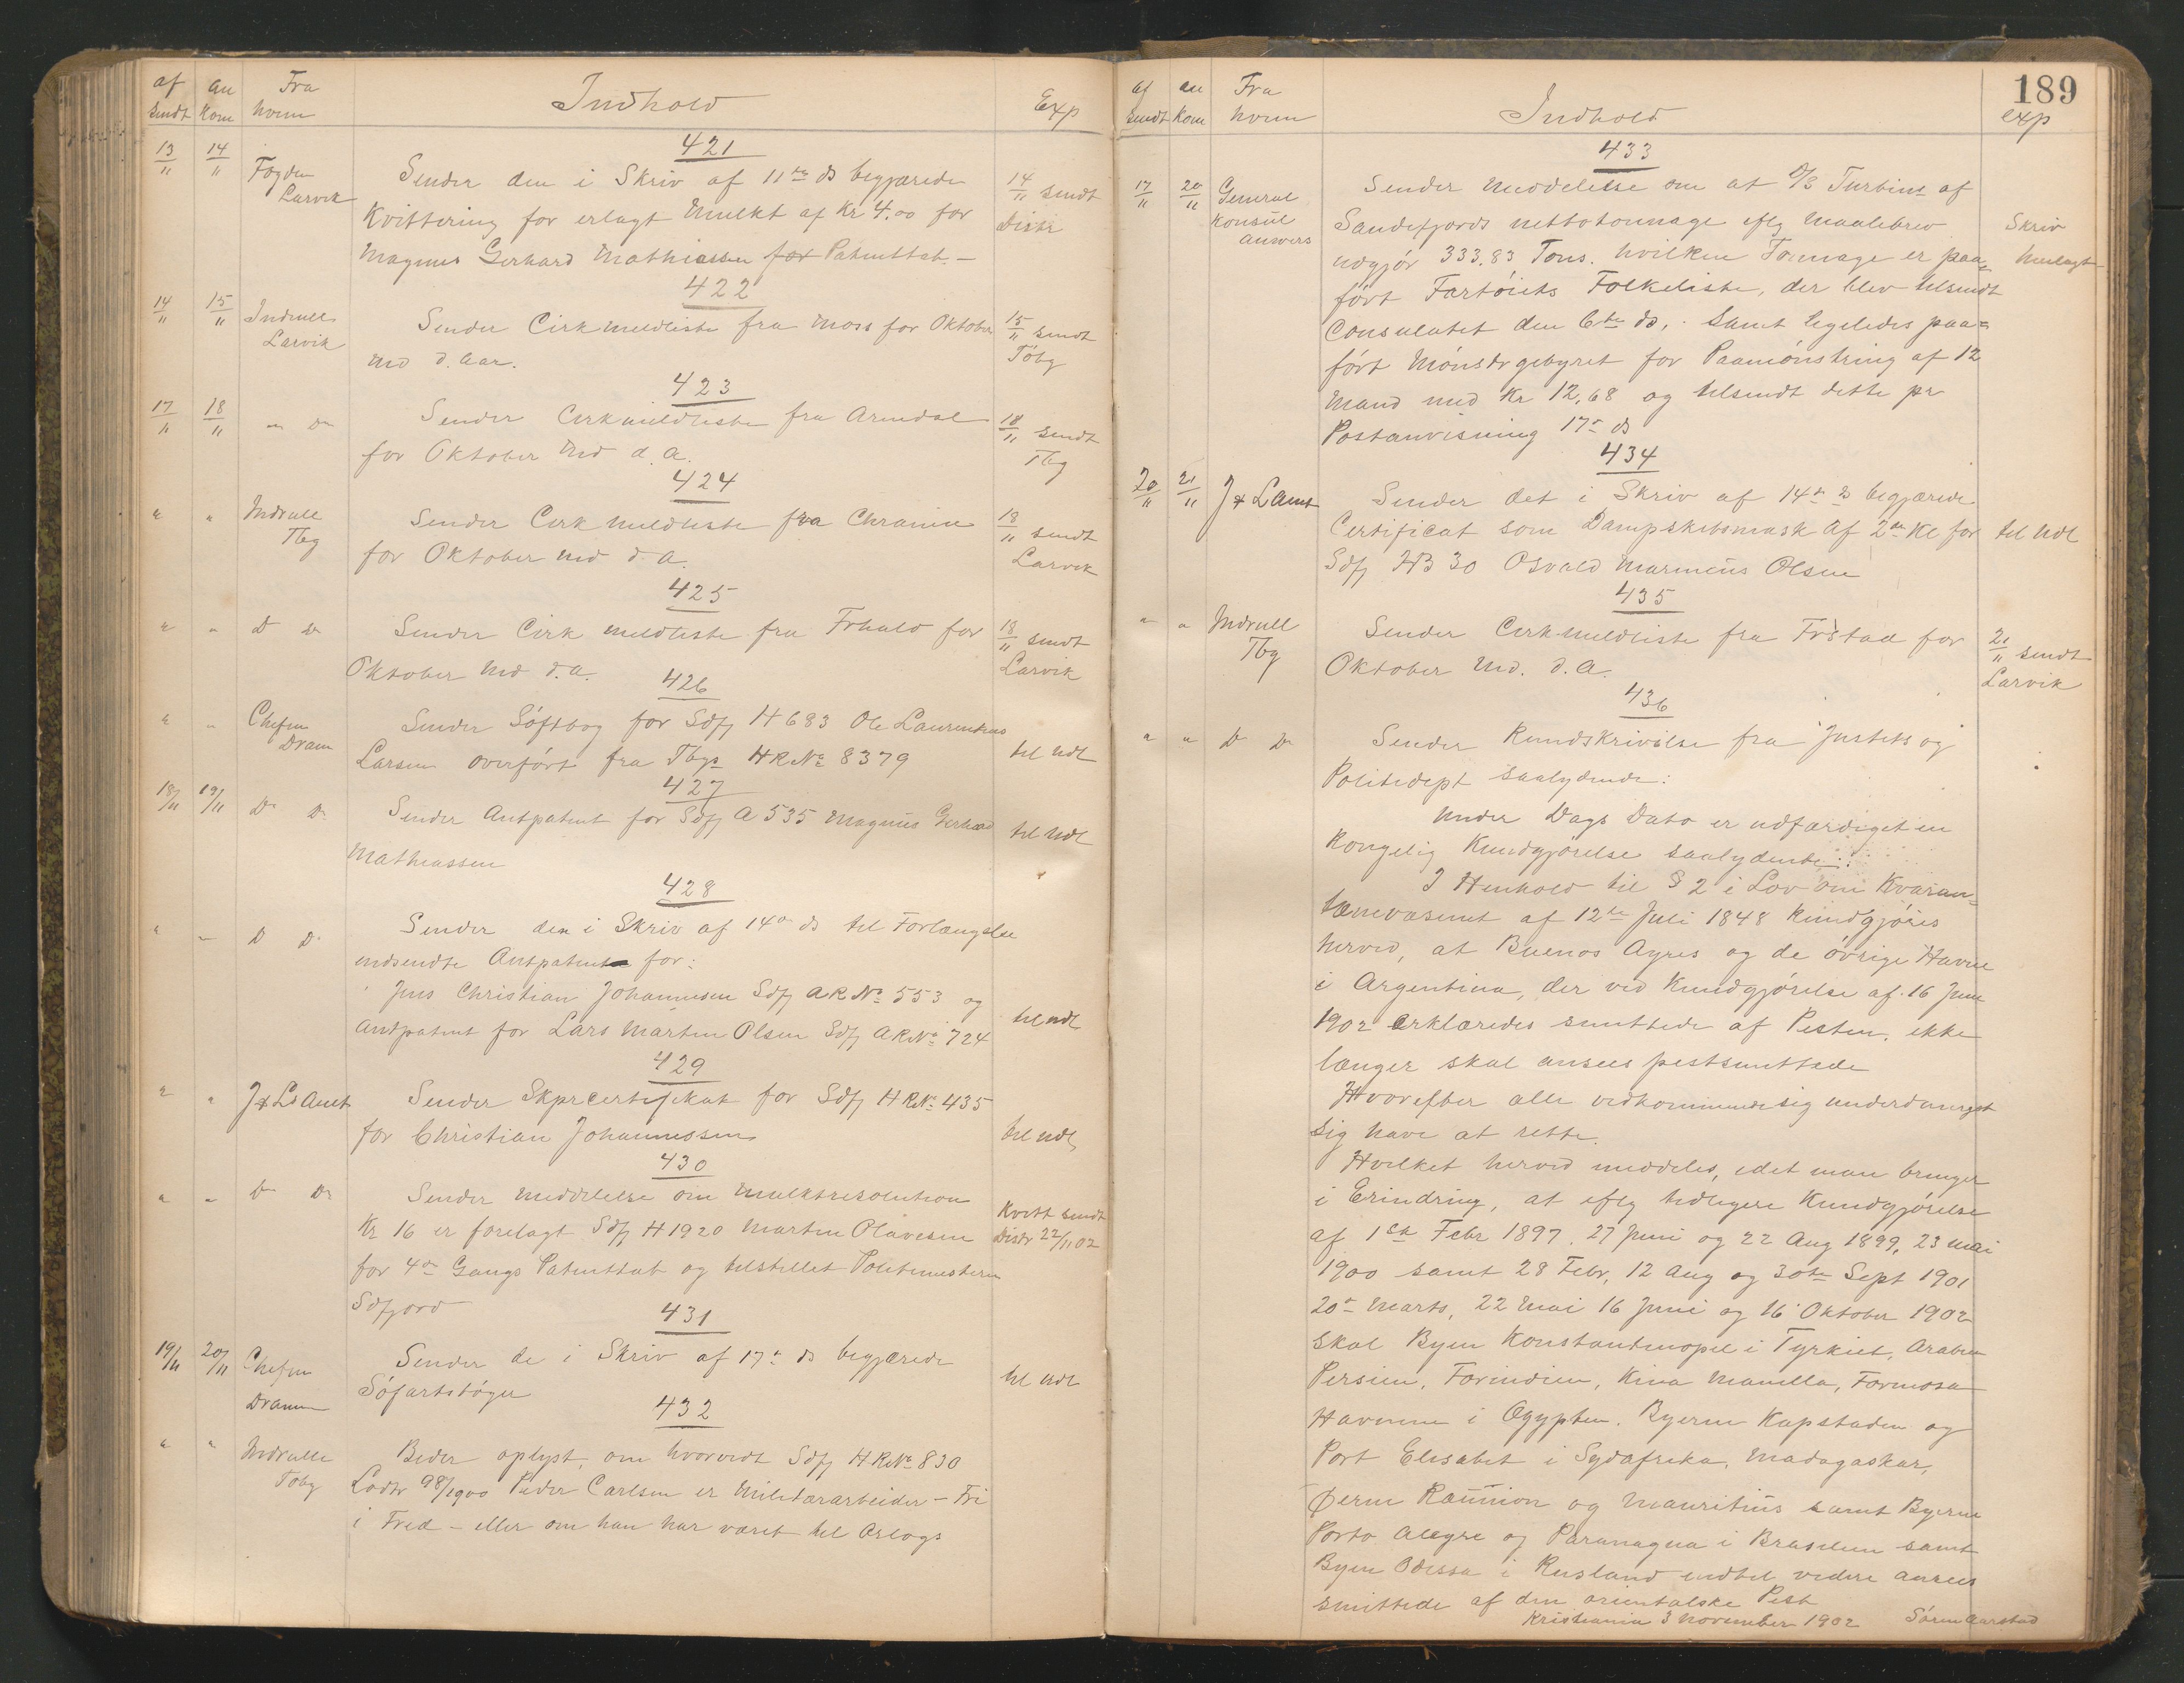 af sendt
an kom
Fra hvem
Indhold
Exp
421
13/11 14/11 Fogden Larvik
Sender den i Skriv af 11te ds begjærede
Kvittering for erlagt Mulkt af Kr 4.00 for
Magnus Gerhard Mathiassen for Patenttab. –
14/11 sendt Distr
422
14/11 15/11 Indrull Larvik
Sender Cirk meldliste fra Moss for Oktober
Md d. Aar.
15/11 sendt Töbg
423
17/11 18/11 – Do
Sender Cirkmeldliste fra Arendal
for Oktober Md d. A.
18/11 sendt Tbg
424
" " Indrull Tbg
Sender Cirk meldliste fra Chrania
for Oktober Md d. A.
18/11 sendt Larvik
425
" " D Do
Sender Cirk meldliste fra Frhald for
Oktober Md d. A.
18/11 sendt Larvik
426
" " Chefen Dram
Sender Söftbog for Sdfj H 683 Ole Laurentius
Larsen overfört fra Tbgs HR No 8379
til Udl
427
18/11 19/11 Do Do
Sender Antpatent for Sdfj A 535 Magnus Gerhard
Mathiassen
til Udl
428
" " D Do
Sender den i Skriv af 14de ds til Forlængelse
indsendte Antpatent for:
Jens Christian Johannesen Sdfj AR No 553 og
Antpatent for Lars Martin Olsen Sdfj AR No 724
til Udl
429
" " J & L Amt
Sender Skprcertifikat for Sdfj HR No 435
for Christian Johannessen
til Udl
430
" " D Do
Sender Meddelelse om Mulktresolution
Kr 16 er forelagt Sdfj H 1920 Martin Olavesen
for 4de Gangs Patenttab og tilstillet Politimesteren
Sdfjord
Kvitt sendt Distr 22/11 02
431
19/11 20/11 Chefen Dramm
Sender de i Skriv af 17de ds begjærede
Söfartsböger
til Udl
432
" " Indrulle Töbg
Beder oplyst, om hvorvidt Sdfj HR No 830
Lodtr 98/1900 Peder Carlsen er Militærarbeider – Fri
i Fred – eller om han har været til Orlogs
189
af sendt
an kom
Fra hvem
Indhold
exp
433
17/11 20/11 General Konsul Anvers
Sender Meddelelse om at D/S Turbins af
Sandefjords nettotonnage eflg Maalebrev
udgjör 333.83 Tons. hvilken Tonnage er paa=
fört Fartöiets Folkeliste, der blev tilsendt
Consulatet den 6te ds, samt ligeledes paa=
fört Mönstrgebyret for Paamönstring af 12
Mand med Kr 12,68 og tilsendt dette pr
Postanvisning 17de ds
Skriv henlagt
434
20/11 21/11 J & L Amt
Sender det i Skriv af 14de ds begjærede
Certificat som Dampskibsmask af 2den Kl for
Sdfj HB 30 Osvald Marinius Olsen
til Udl
435
" " Indrull Tbg
Sender Cirk meldliste fra Frstad for
Oktober Md. d. A.
21/11 sendt Larvik
436
" " D Do
Sender Rundskrivelse fra Justits og
Politidept saalydende:
Under Dags Dato er udfærdiget en
Kongelig Kundgjörelse saalydende:
I Henhold til § 2 i Lov om Kvaran=
tænevæsenet af 12te Juli 1848 kundgjöres
herved, at Buenos Ayres og de övrige Havne
i Argentina, der ved Kundgjörelse af 16 Juni
1902 erklæredes smittede af Pesten, ikke
længer skal ansees pestsmittede
Hvorefter alle vedkommende sig underdanigst
sig have at rette.
Hvilket herved meddeles, idet man bringer
i Erindring, at eflg tidligere Kundgjörelse
af 1ste Febr 1897, 27 Juni og 22 Aug 1899, 23 Mai
1900 samt 28 Febr, 12 Aug og 30te Sept 1901
20de Marts, 22 Mai 16 Juni og 16 Oktober 1902
skal Byen Konstantinopel i Tyrkiet, Arabien
Persien, Forindien, Kina Manilla, Formosa
Havnene i Ægypten. Byerne Kapstaden og
Port Elisabet i Sydafrika, Madagaskar,
Öerne Raunion og Mauritius samt Byerne
Porto Alegre og Paranagua i Brasilien samt
Byen Odessa i Rusland indtil videre ansees
smittede af den orientalske Pest
Kristiania 3 November 1902 Sören Aarstad